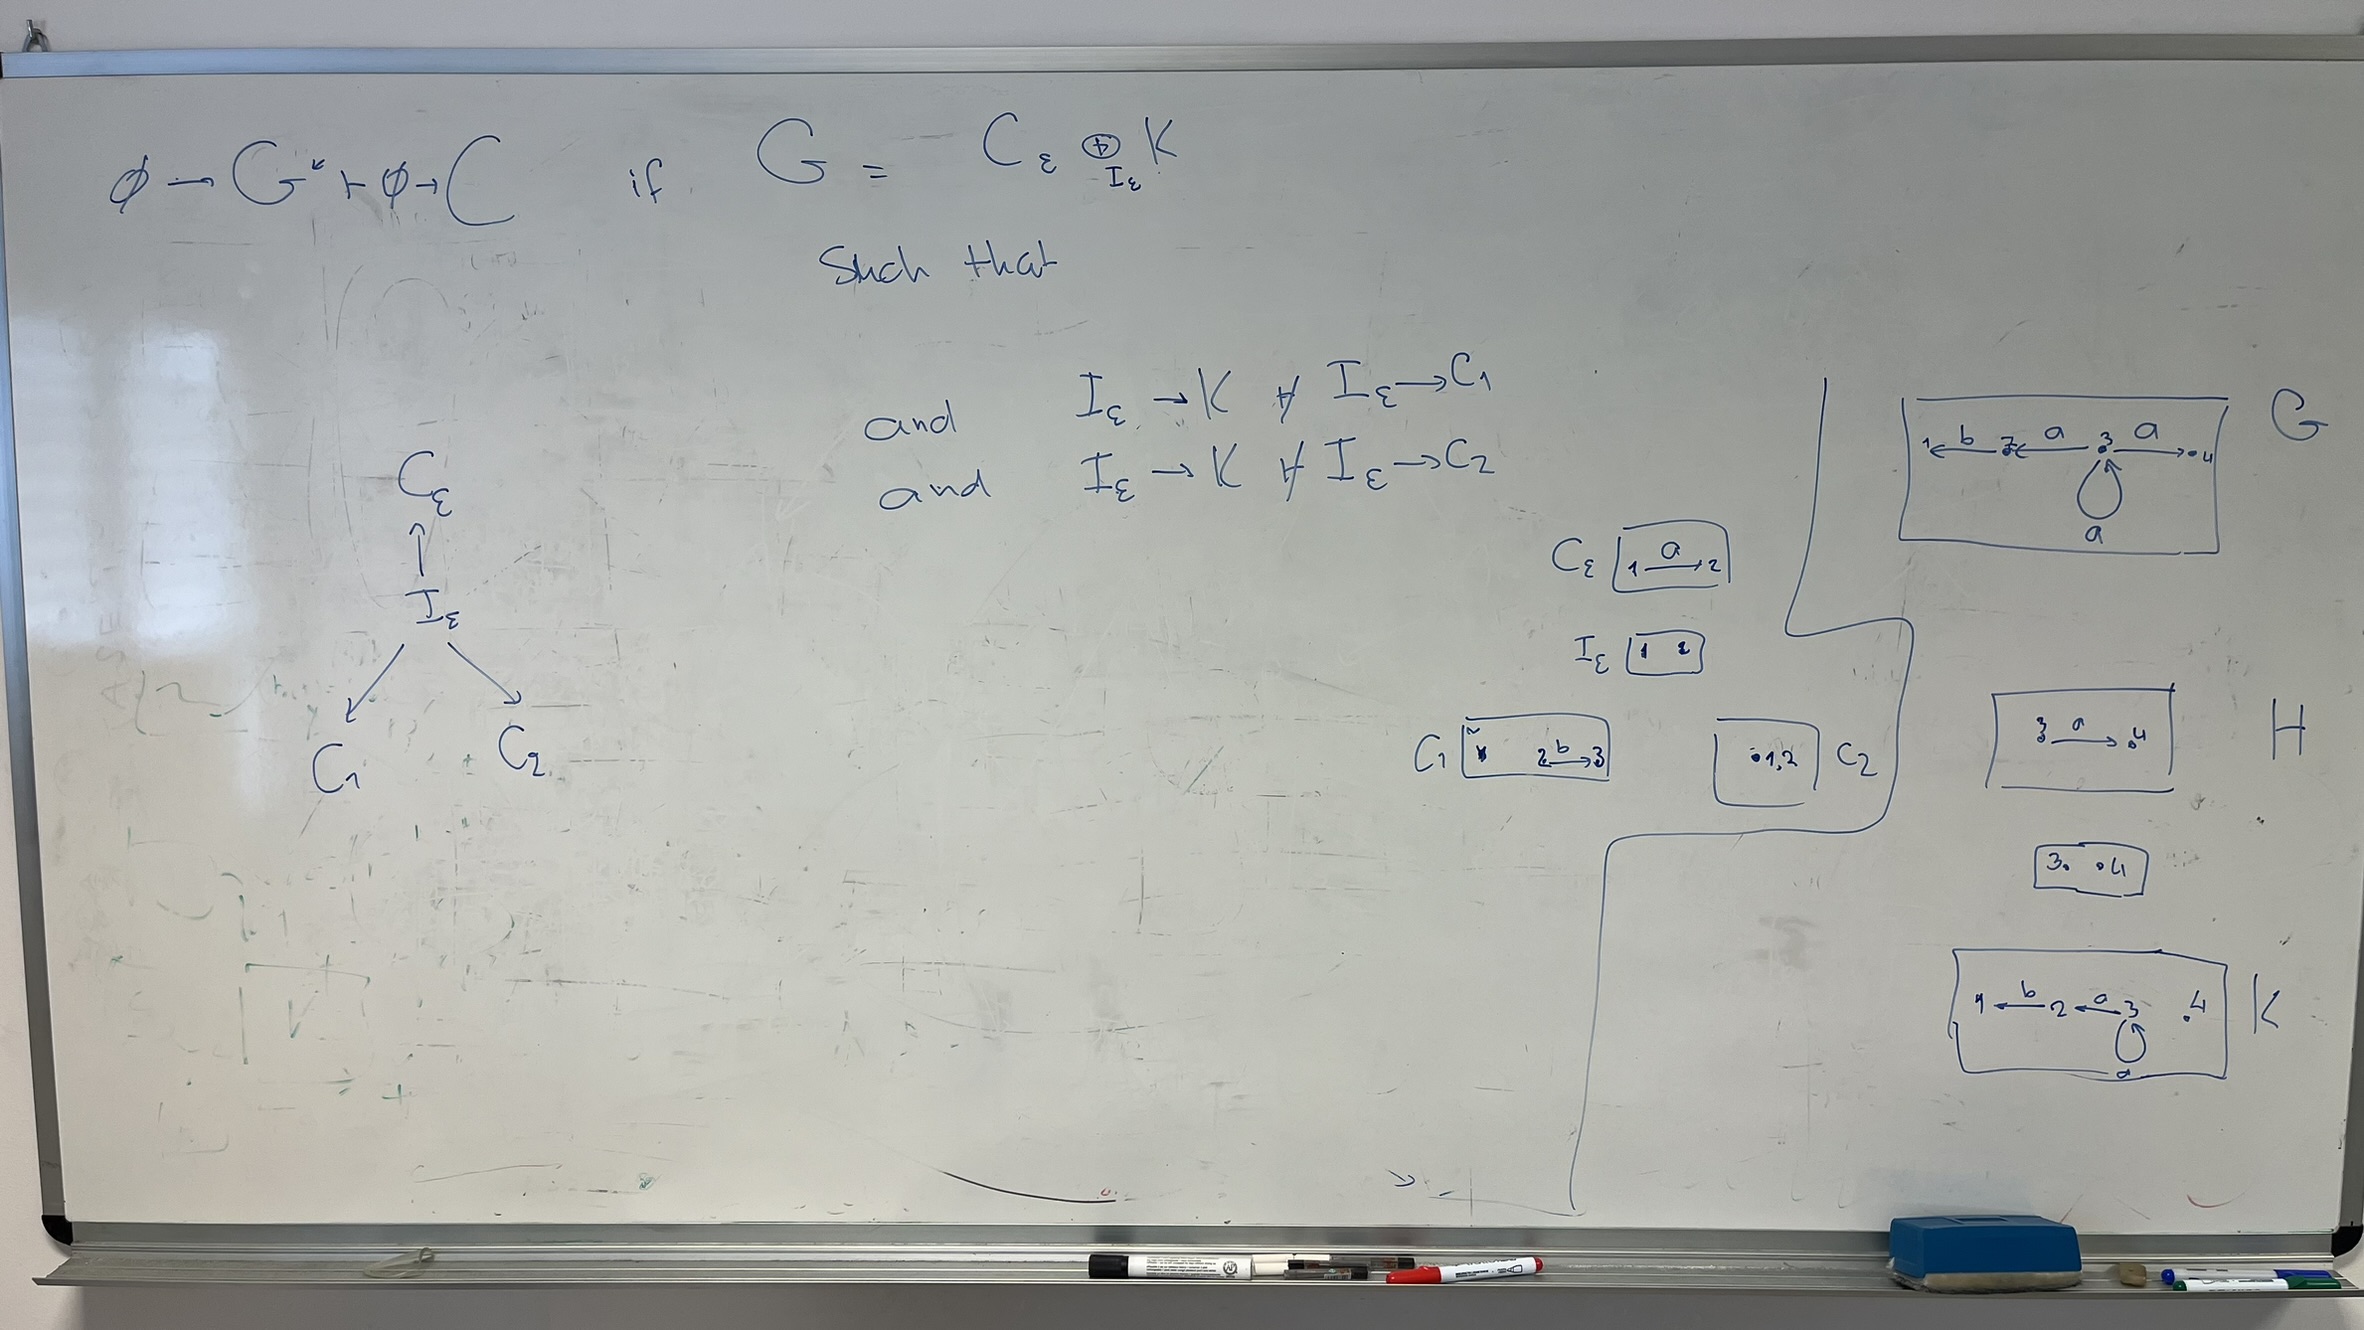 ∅ → G ⊢ ∅ → C if G = C_ε ⊕_{I_ε} K
Such that
and I_ε → K ⊬ I_ε → C_1
and I_ε → K ⊬ I_ε → C_2
C_ε
I_ε
C_1 C_2
C_ε 1 a 2
I_ε 1 2
C_1 2 b 3
1,2 C_2
1 b 2 a 3 a 4 G
a
3 a 4 H
3 4
1 b 2 a 3 4 K
a